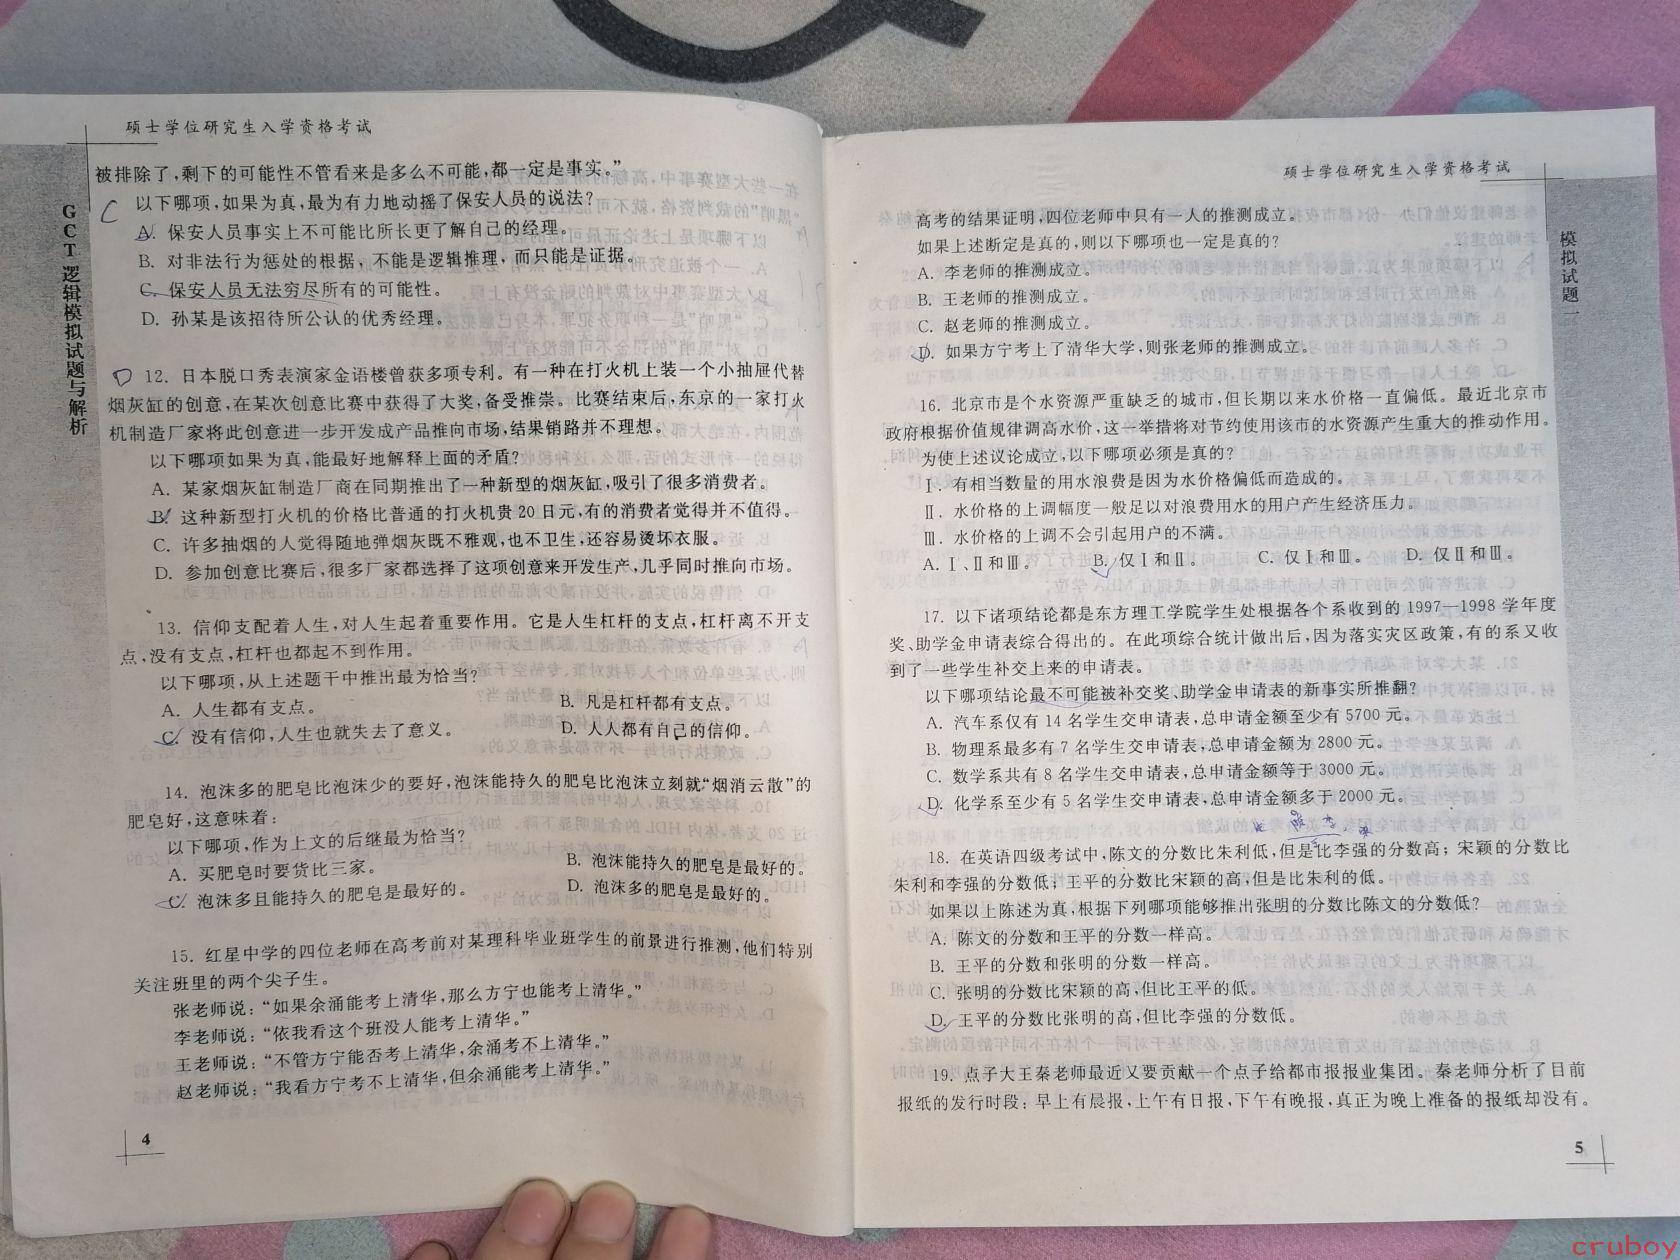 硕士学位研究生入学资格考试
GCT逻辑模拟试题与解析
被排除了,剩下的可能性不管看来是多么不可能,都一定是事实。”
C
以下哪项,如果为真,最为有力地动摇了保安人员的说法?
A. 保安人员事实上不可能比所长更了解自己的经理。
B. 对非法行为惩处的根据,不能是逻辑推理,而只能是证据。
C. 保安人员无法穷尽所有的可能性。
D. 孙某是该招待所公认的优秀经理。
D
12. 日本脱口秀表演家金语楼曾获多项专利。有一种在打火机上装一个小抽屉代替
烟灰缸的创意,在某次创意比赛中获得了大奖,备受推崇。比赛结束后,东京的一家打火
机制造厂家将此创意进一步开发成产品推向市场,结果销路并不理想。
以下哪项如果为真,能最好地解释上面的矛盾?
A. 某家烟灰缸制造厂商在同期推出了一种新型的烟灰缸,吸引了很多消费者。
B. 这种新型打火机的价格比普通的打火机贵20日元,有的消费者觉得并不值得。
C. 许多抽烟的人觉得随地弹烟灰既不雅观,也不卫生,还容易烫坏衣服。
D. 参加创意比赛后,很多厂家都选择了这项创意来开发生产,几乎同时推向市场。
13. 信仰支配着人生,对人生起着重要作用。它是人生杠杆的支点,杠杆离不开支
点,没有支点,杠杆也都起不到作用。
以下哪项,从上述题干中推出最为恰当?
A. 人生都有支点。 B. 凡是杠杆都有支点。
C. 没有信仰,人生也就失去了意义。 D. 人人都有自己的信仰。
14. 泡沫多的肥皂比泡沫少的要好,泡沫能持久的肥皂比泡沫立刻就“烟消云散”的
肥皂好,这意味着:
以下哪项,作为上文的后继最为恰当?
A. 买肥皂时要货比三家。 B. 泡沫能持久的肥皂是最好的。
C. 泡沫多且能持久的肥皂是最好的。 D. 泡沫多的肥皂是最好的。
15. 红星中学的四位老师在高考前对某理科毕业班学生的前景进行推测,他们特别
关注班里的两个尖子生。
张老师说:“如果余涌能考上清华,那么方宁也能考上清华。”
李老师说:“依我看这个班没人能考上清华。”
王老师说:“不管方宁能否考上清华,余涌考不上清华。”
赵老师说:“我看方宁考不上清华,但余涌能考上清华。”
4
硕士学位研究生入学资格考试
模拟试题一
高考的结果证明,四位老师中只有一人的推测成立。
如果上述断定是真的,则以下哪项也一定是真的?
A. 李老师的推测成立。
B. 王老师的推测成立。
C. 赵老师的推测成立。
D. 如果方宁考上了清华大学,则张老师的推测成立。
16. 北京市是个水资源严重缺乏的城市,但长期以来水价格一直偏低。最近北京市
政府根据价值规律调高水价,这一举措将对节约使用该市的水资源产生重大的推动作用。
为使上述议论成立,以下哪项必须是真的?
Ⅰ. 有相当数量的用水浪费是因为水价格偏低而造成的。
Ⅱ. 水价格的上调幅度一般足以对浪费用水的用户产生经济压力。
Ⅲ. 水价格的上调不会引起用户的不满。
A. Ⅰ、Ⅱ和Ⅲ。 B. 仅Ⅰ和Ⅱ。 C. 仅Ⅰ和Ⅲ。 D. 仅Ⅱ和Ⅲ。
17. 以下诸项结论都是东方理工学院学生处根据各个系收到的1997—1998学年度
奖、助学金申请表综合得出的。在此项综合统计做出后,因为落实灾区政策,有的系又收
到了一些学生补交上来的申请表。
以下哪项结论最不可能被补交奖、助学金申请表的新事实所推翻?
A. 汽车系仅有14名学生交申请表,总申请金额至少有5700元。
B. 物理系最多有7名学生交申请表,总申请金额为2800元。
C. 数学系共有8名学生交申请表,总申请金额等于3000元。
D. 化学系至少有5名学生交申请表,总申请金额多于2000元。
18. 在英语四级考试中,陈文的分数比朱利低,但是比李强的分数高;宋颖的分数比
朱利和李强的分数低;王平的分数比宋颖的高,但是比朱利的低。
如果以上陈述为真,根据下列哪项能够推出张明的分数比陈文的分数低?
A. 陈文的分数和王平的分数一样高。
B. 王平的分数和张明的分数一样高。
C. 张明的分数比宋颖的高,但比王平的低。
D. 王平的分数比张明的高,但比李强的分数低。
19. 点子大王秦老师最近又要贡献一个点子给都市报报业集团。秦老师分析了目前
报纸的发行时段:早上有晨报,上午有日报,下午有晚报,真正为晚上准备的报纸却没有。
5
cruboy